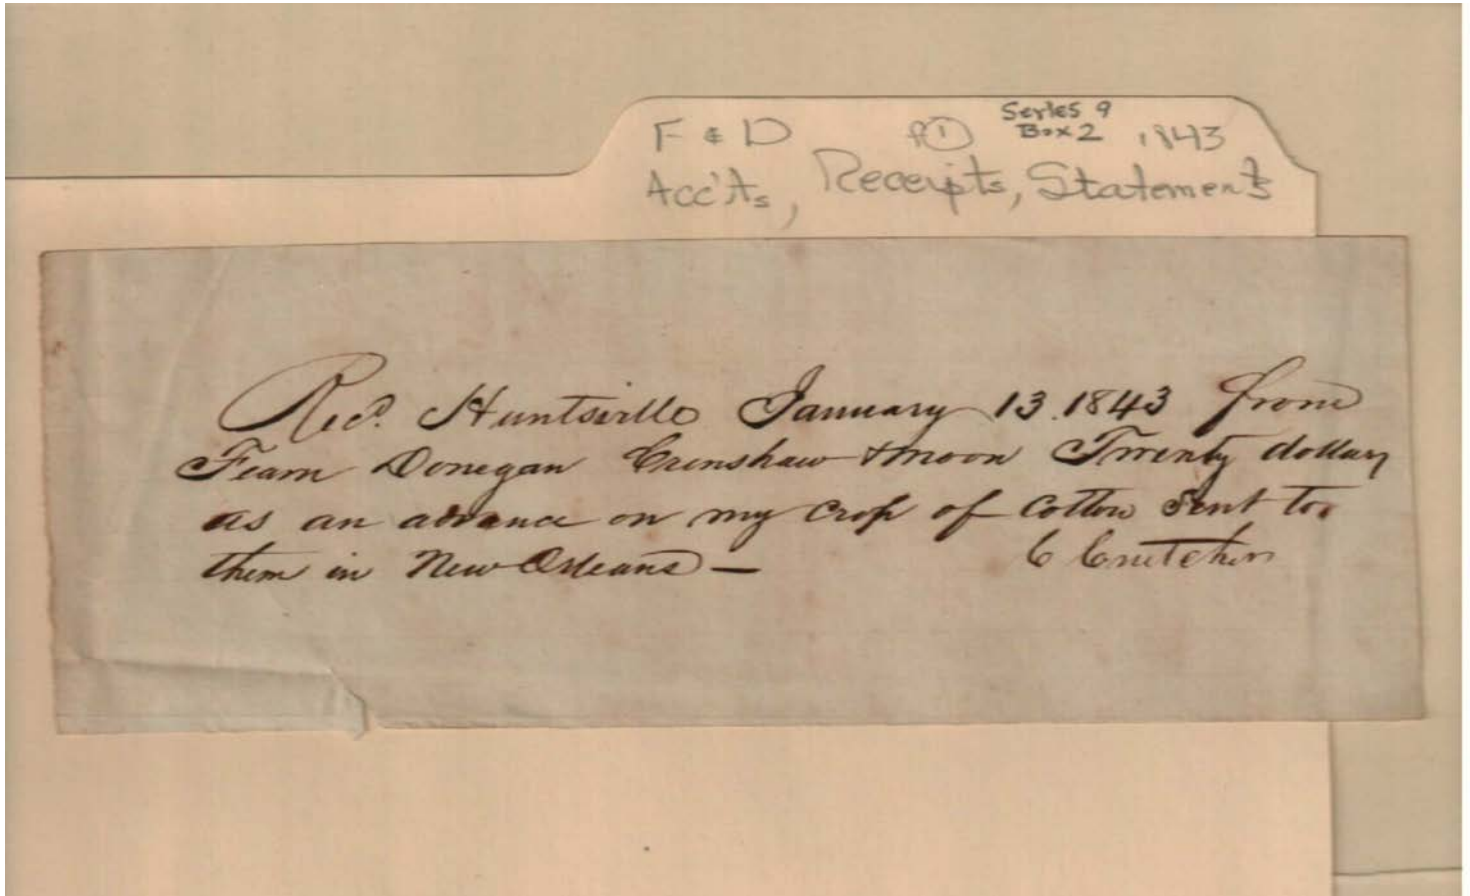 F & D P① Series 9
Box 2 1843
Acc'ts, Receipts, Statements
Recd. Huntsville January 13. 1843 from
Fearn Donegan Crenshaw & moon Twenty dollars
as an advance on my crop of Cotton Sent to
them in New Orleans —
C Crutcher